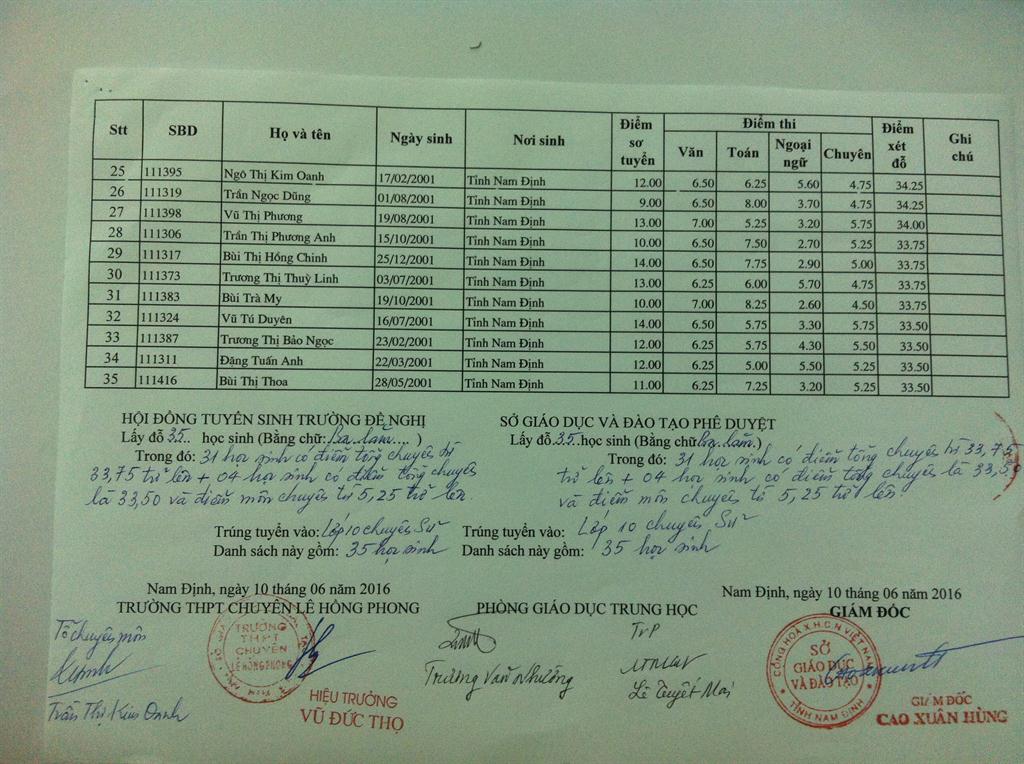 Stt SBD Họ và tên Ngày sinh Nơi sinh Điểm sơ tuyển Điểm thi Điểm xét đỗ Ghi chú
Văn Toán Ngoại ngữ Chuyên
25 111395 Ngô Thị Kim Oanh 17/02/2001 Tỉnh Nam Định 12.00 6.50 6.25 5.60 4.75 34.25
26 111319 Trần Ngọc Dũng 01/08/2001 Tỉnh Nam Định 9.00 6.50 8.00 3.70 4.75 34.25
27 111398 Vũ Thị Phương 19/08/2001 Tỉnh Nam Định 13.00 7.00 5.25 3.20 5.75 34.00
28 111306 Trần Thị Phương Anh 15/10/2001 Tỉnh Nam Định 10.00 6.50 7.50 2.70 5.25 33.75
29 111317 Bùi Thị Hồng Chinh 25/12/2001 Tỉnh Nam Định 14.00 6.50 7.75 2.90 5.00 33.75
30 111373 Trương Thị Thuỳ Linh 03/07/2001 Tỉnh Nam Định 13.00 6.25 6.00 5.70 4.75 33.75
31 111383 Bùi Trà My 19/10/2001 Tỉnh Nam Định 10.00 7.00 8.25 2.60 4.50 33.75
32 111324 Vũ Tú Duyên 16/07/2001 Tỉnh Nam Định 14.00 6.50 5.75 3.30 5.75 33.50
33 111387 Trương Thị Bảo Ngọc 23/02/2001 Tỉnh Nam Định 12.00 6.25 5.75 4.30 5.50 33.50
34 111311 Đặng Tuấn Anh 22/03/2001 Tỉnh Nam Định 12.00 6.25 5.00 5.50 5.25 33.50
35 111416 Bùi Thị Thoa 28/05/2001 Tỉnh Nam Định 11.00 6.25 7.25 3.20 5.25 33.50
HỘI ĐỒNG TUYỂN SINH TRƯỜNG ĐỀ NGHỊ
Lấy đỗ 35.. học sinh (Bằng chữ: Ba lăm....)
Trong đó: 31 học sinh có điểm tổng chuyên từ
33,75 trở lên + 04 học sinh có điểm tổng chuyên
là 33,50 và điểm môn chuyên từ 5,25 trở lên.
Trúng tuyển vào: Lớp 10 chuyên Sử
Danh sách này gồm: 35 học sinh
SỞ GIÁO DỤC VÀ ĐÀO TẠO PHÊ DUYỆT
Lấy đỗ 35. học sinh (Bằng chữ Ba lăm.)
Trong đó: 31 học sinh có điểm tổng chuyên từ 33,75
trở lên + 04 học sinh có điểm tổng chuyên là 33,50
và điểm môn chuyên từ 5,25 trở lên
Trúng tuyển vào: Lớp 10 chuyên Sử
Danh sách này gồm: 35 học sinh
Nam Định, ngày 10 tháng 06 năm 2016
TRƯỜNG THPT CHUYÊN LÊ HỒNG PHONG
Tổ chuyên môn
Trần Thị Kim Oanh
TRƯỜNG
THPT
CHUYÊN
LÊ HỒNG PHONG
HIỆU TRƯỞNG
VŨ ĐỨC THỌ
PHÒNG GIÁO DỤC TRUNG HỌC
TrP
Trương Văn Nhường
Lê Tuyết Mai
Nam Định, ngày 10 tháng 06 năm 2016
GIÁM ĐỐC
CỘNG HOÀ X.H.C.N VIỆT NAM
SỞ
GIÁO DỤC
VÀ ĐÀO TẠO
TỈNH NAM ĐỊNH
GIÁM ĐỐC
CAO XUÂN HÙNG